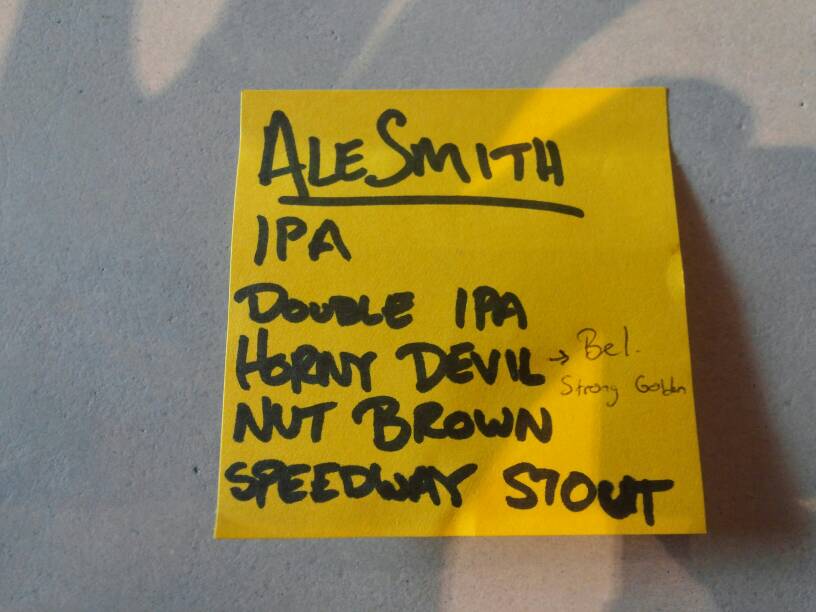 ALESMITH
IPA
DOUBLE IPA
HORNY DEVIL → Bel.
Strong Golden
NUT BROWN
SPEEDWAY STOUT